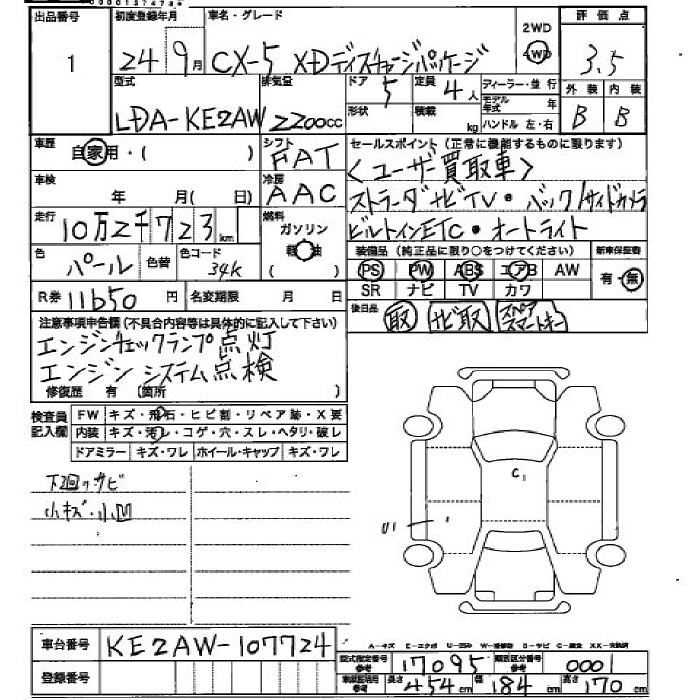 出品番号 初度登録年月 車名・グレード 2WD 評価点
1 24 9月 CX-5 XDディスチャージパッケージ 4WD 3.5
型式 排気量 ドア 定員 ディーラー・並行 外装 内装
LDA-KE2AW 2200cc 5 4人 モデル年式 年 B B
形状 積載 kg ハンドル 左・右
車歴 自家用・( ) シフト FAT セールスポイント(正常に機能するものに限ります)
<ユーザー買取車>
車検 年 月( 日) 冷房 AAC ストラーダナビTV・バック/サイドカメラ
走行 10万2千723km 燃料 ガソリン 軽油 ( ) ビルトインETC・オートライト
色 パール 色替 色コード 34K 装備品(純正品に限り○をつけてください) 新車保証書
PS PW ABS エアB AW 有・無
SR ナビ TV カワ
R券 11650円 名変期限 月 日 後日品 取 ナビ取 スペアスマートキー
注意事項申告欄(不具合内容等は具体的に記入して下さい)
エンジンチェックランプ点灯
エンジンシステム点検
修復歴 有 〔箇所 〕
検査員記入欄 FW キズ・飛石・ヒビ割・リペア跡・X要
内装 キズ・汚レ・コゲ・穴・スレ・ヘタリ・破レ
ドアミラー キズ・ワレ ホイール・キャップ キズ・ワレ
下廻りサビ
小キズ・小凹
C1
U1
車台番号 KE2AW-107724
A-キズ E-エクボ U-凹み W-補修跡 S-サビ C-腐食 XX-交換済
型式指定番号 参考 17095 類別区分番号 参考 0001
登録番号 車検証記載 参考 長さ 454cm 幅 184cm 高さ 170cm